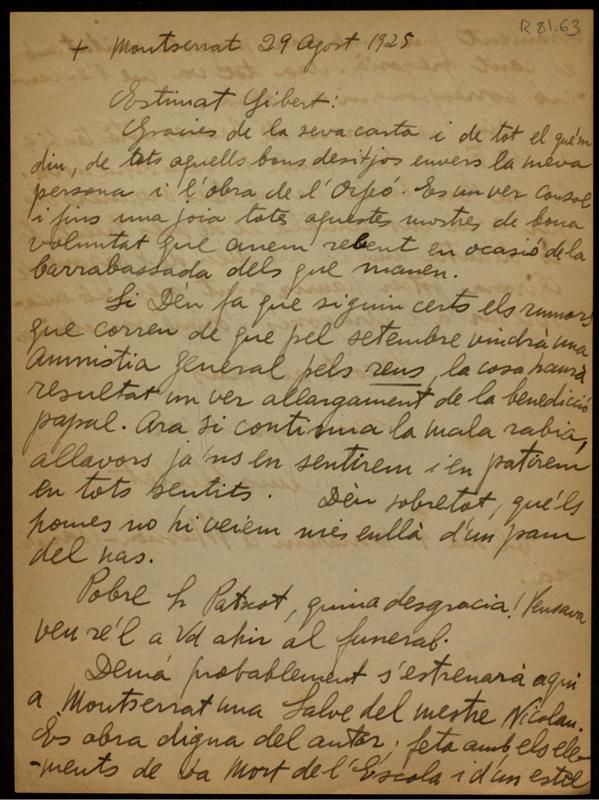 R 81.63
+ Montserrat 29 Agost 1925
Estimat Gibert:
Gracies de la seva carta i de tot el que'm
diu, de tots aquells bons desitjos envers la meva
persona i l'obra de l'Orfeó. Es un ver consol
i fins una joia totes aquestes mostres de bona
voluntat que anem rebent en ocasió de la
barrabassada dels que manen.
Si Déu fa que siguin certs els rumors
que corren de que pel setembre vindrà una
amnistia general pels reus, la cosa haurà
resultat un ver allargament de la benedicció
papal. Ara si continua la mala rabia,
allavors ja'ns en sentirem i en patirem
en tots sentits. Déu sobretot, qué'ls
homes no hi veiem més enllà d'un pam
del nas.
Pobre Sr Patxot, quina desgracia! Pensava
veure'l a Vd ahir al funeral.
Demá probablement s'estrenarà aqui
a Montserrat una Salve del mestre Nicolau.
Es obra digna del autor; feta amb els ele-
-ments de La Mort de l'Escolà i d'un estil